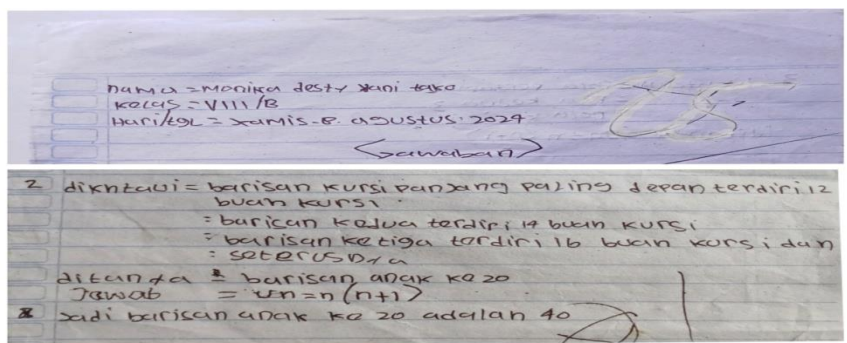 nama = Monika desty yani tako
Kelas = VIII/B
Hari/tgl = Kamis-8. agustus. 2024
(Jawaban)
2 dikntaui = barisan kursi panjang paling depan terdiri 12
buah kursi.
= barican kedua terdiri 14 buah kursi
= barisan ketiga terdiri 16 buah kursi dan
= seterusnya
ditanya = barisan anak ke 20
Jawab = Un = n (n+1)
Jadi barisan anak ke 20 adalah 40